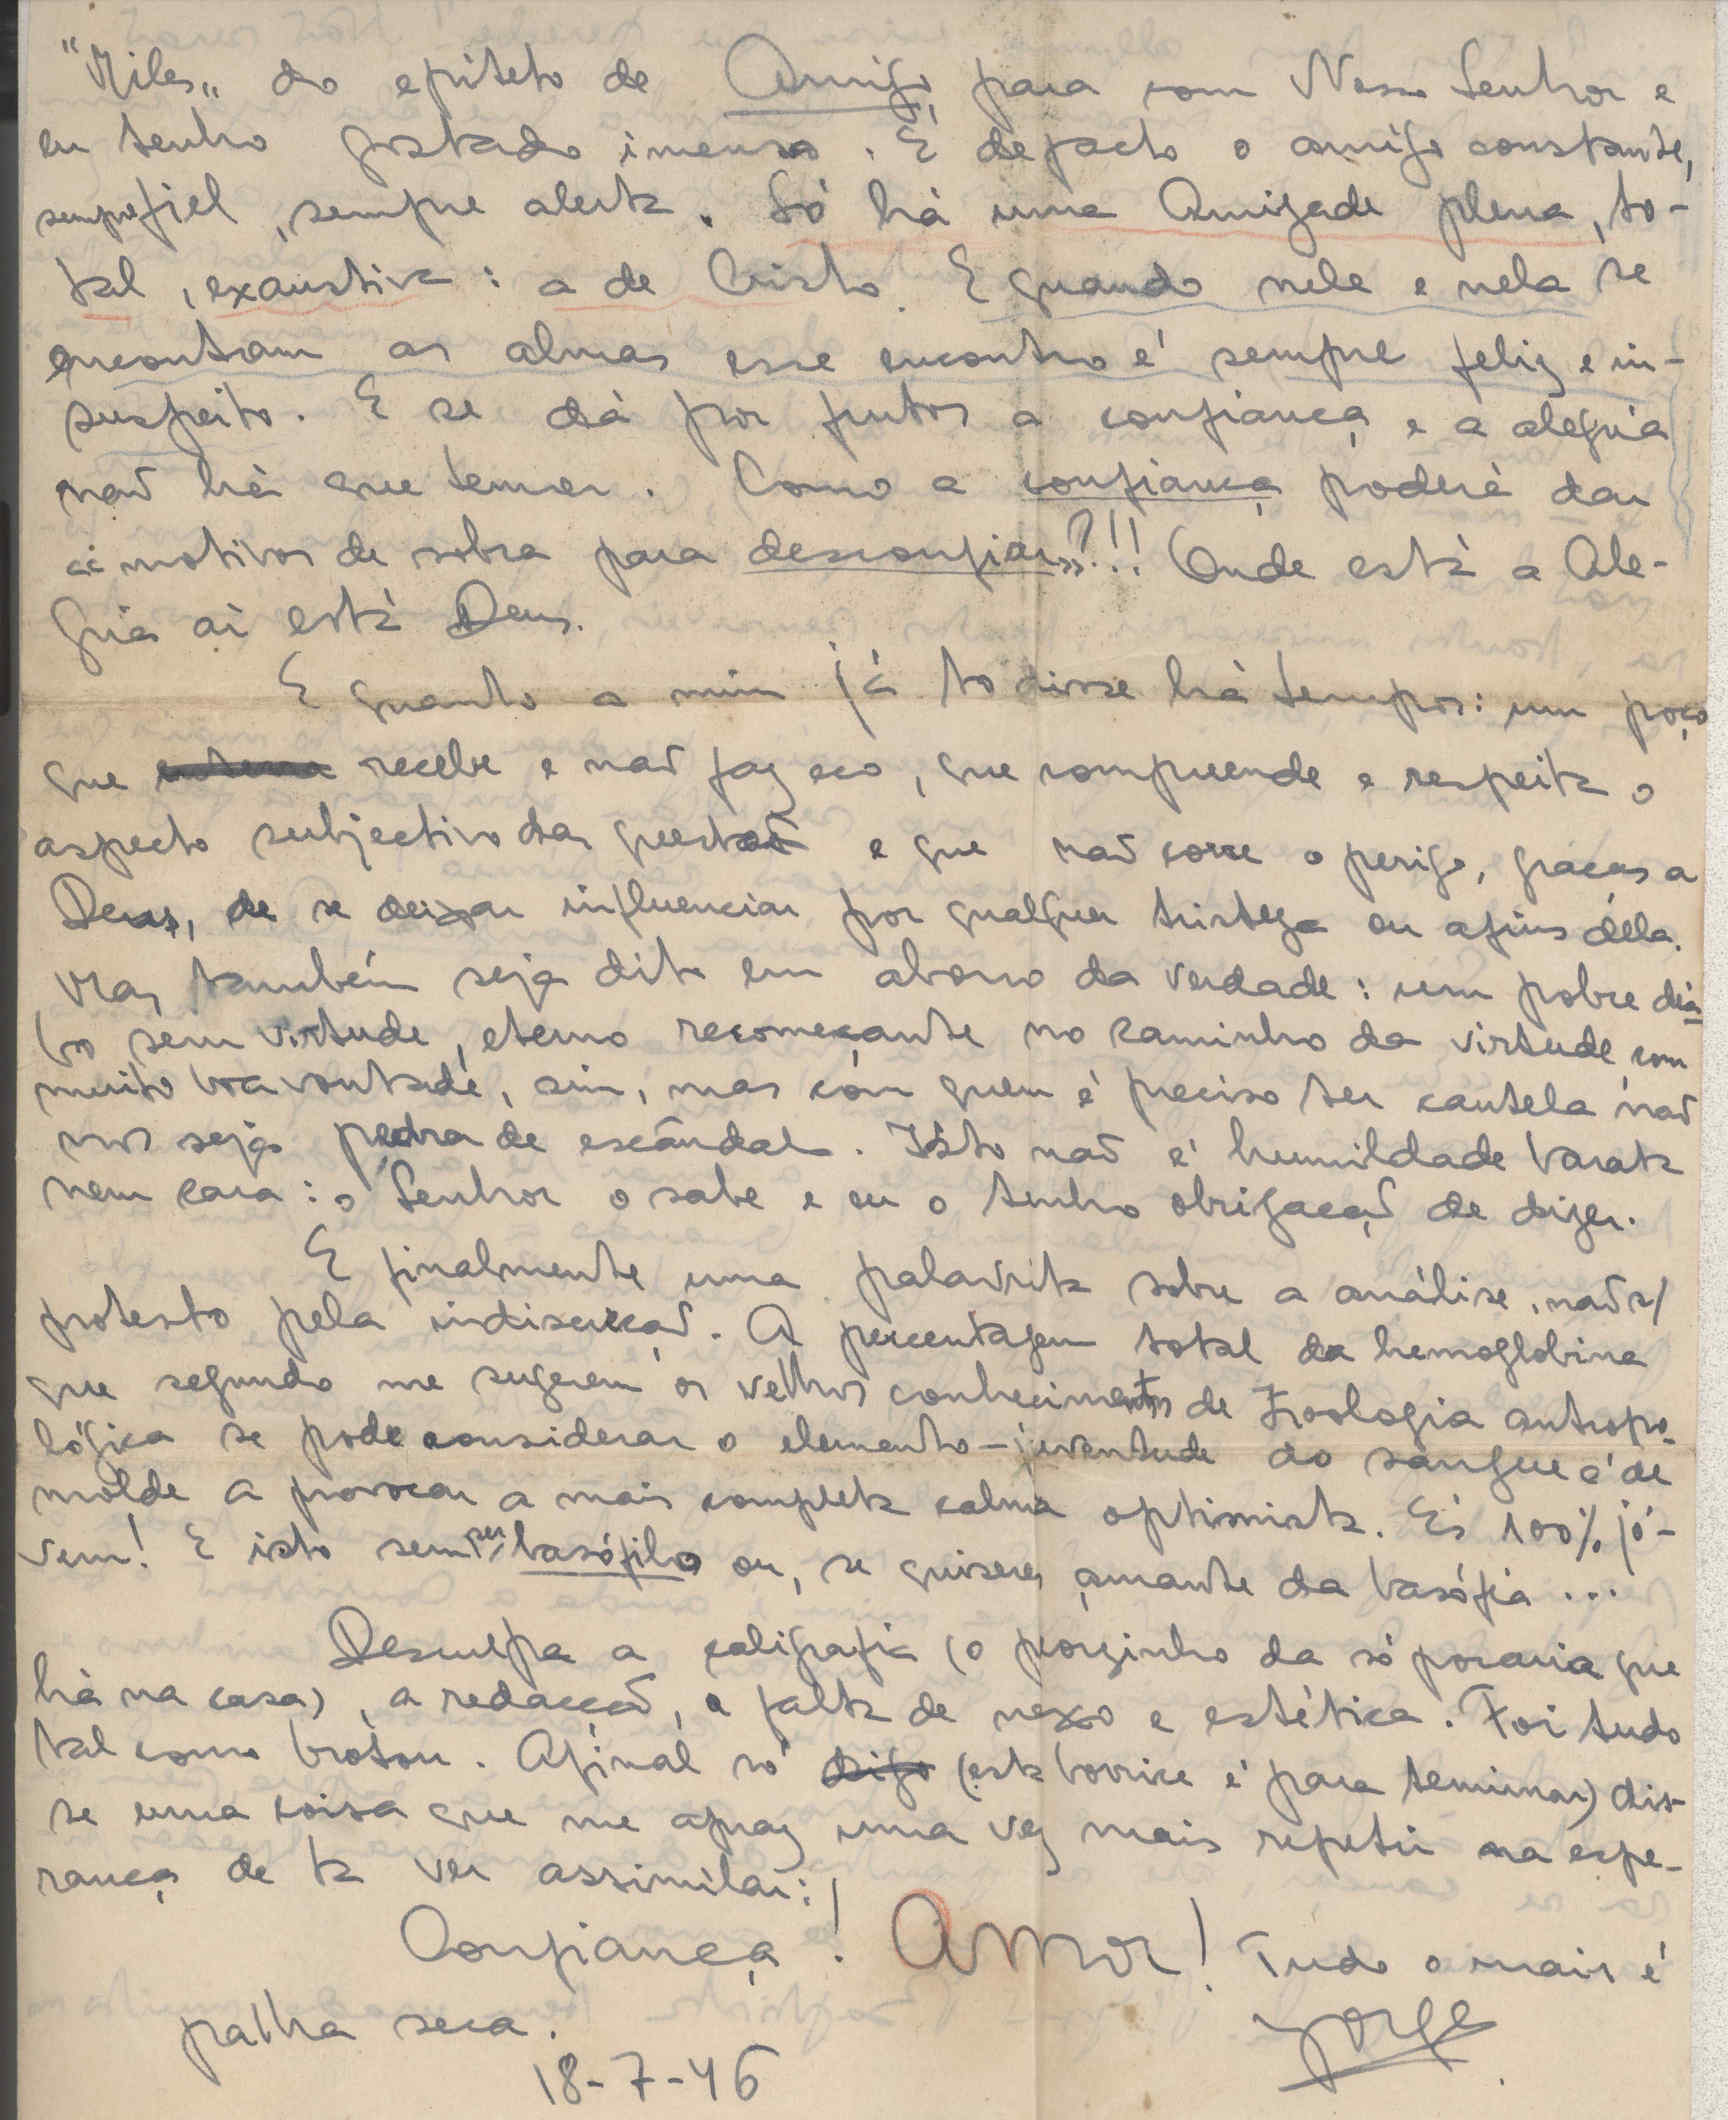 "Miles„ do epíteto de Amigo para com Nosso Senhor e
eu tenho gostado imenso. É de facto o amigo constante,
sempre fiel, sempre alerta. Só há uma Amizade plena, to-
tal, exaustiva: a de Cristo. E quando nele e nela se
encontram as almas esse encontro é sempre feliz e in-
suspeito. E se dá por frutos a confiança e a alegria
não há que temer. Como a confiança poderá dar
«motivos de sobra para desconfiar»?!!! Onde está a Ale-
gria aí está Deus.
E quanto a mim já to disse há tempos: um poço
que recebe e não faz eco, que compreende e respeita o
aspecto subjectivo das questão e que não corre o perigo, graças a
Deus, de se deixar influenciar por qualquer tristeza ou afins dela.
Mas também seja dito em abono da verdade: um pobre dia-
bo sem virtude, eterno recomeçante no caminho da virtude com
muito boa vontade, sim, mas com quem é preciso ter cautela não
nos seja pedra de escândalo. Isto não é humildade barata
nem cara: o Senhor o sabe e eu o tenho obrigação de dizer.
E finalmente uma palavrita sobre a análise, não s/
protesto pela indiscreção. A percentagem total da hemoglobina
que segundo me sugerem os velhos conhecimentos de Zoologia antropo-
lógica se pode considerar o elemento-juventude do sangue é de
molde a provocar a mais completa calma optimista. És 100% jó-
vem! E isto sem ser basófilo ou, se quiseres, amante da basófia ...
Desculpa a caligrafia (o porquinho da só porcaria que
há na casa), a redacção, a falta de nexo e estética. Foi tudo
tal como brotou. Afinal só digo (esta borrice é para terminar) dis-
se uma coisa que me apraz uma vez mais repetir na espe-
rança de ta ver assimilar:
Confiança! Amor! Tudo o mais é
palha seca.
Jorge
18-7-46